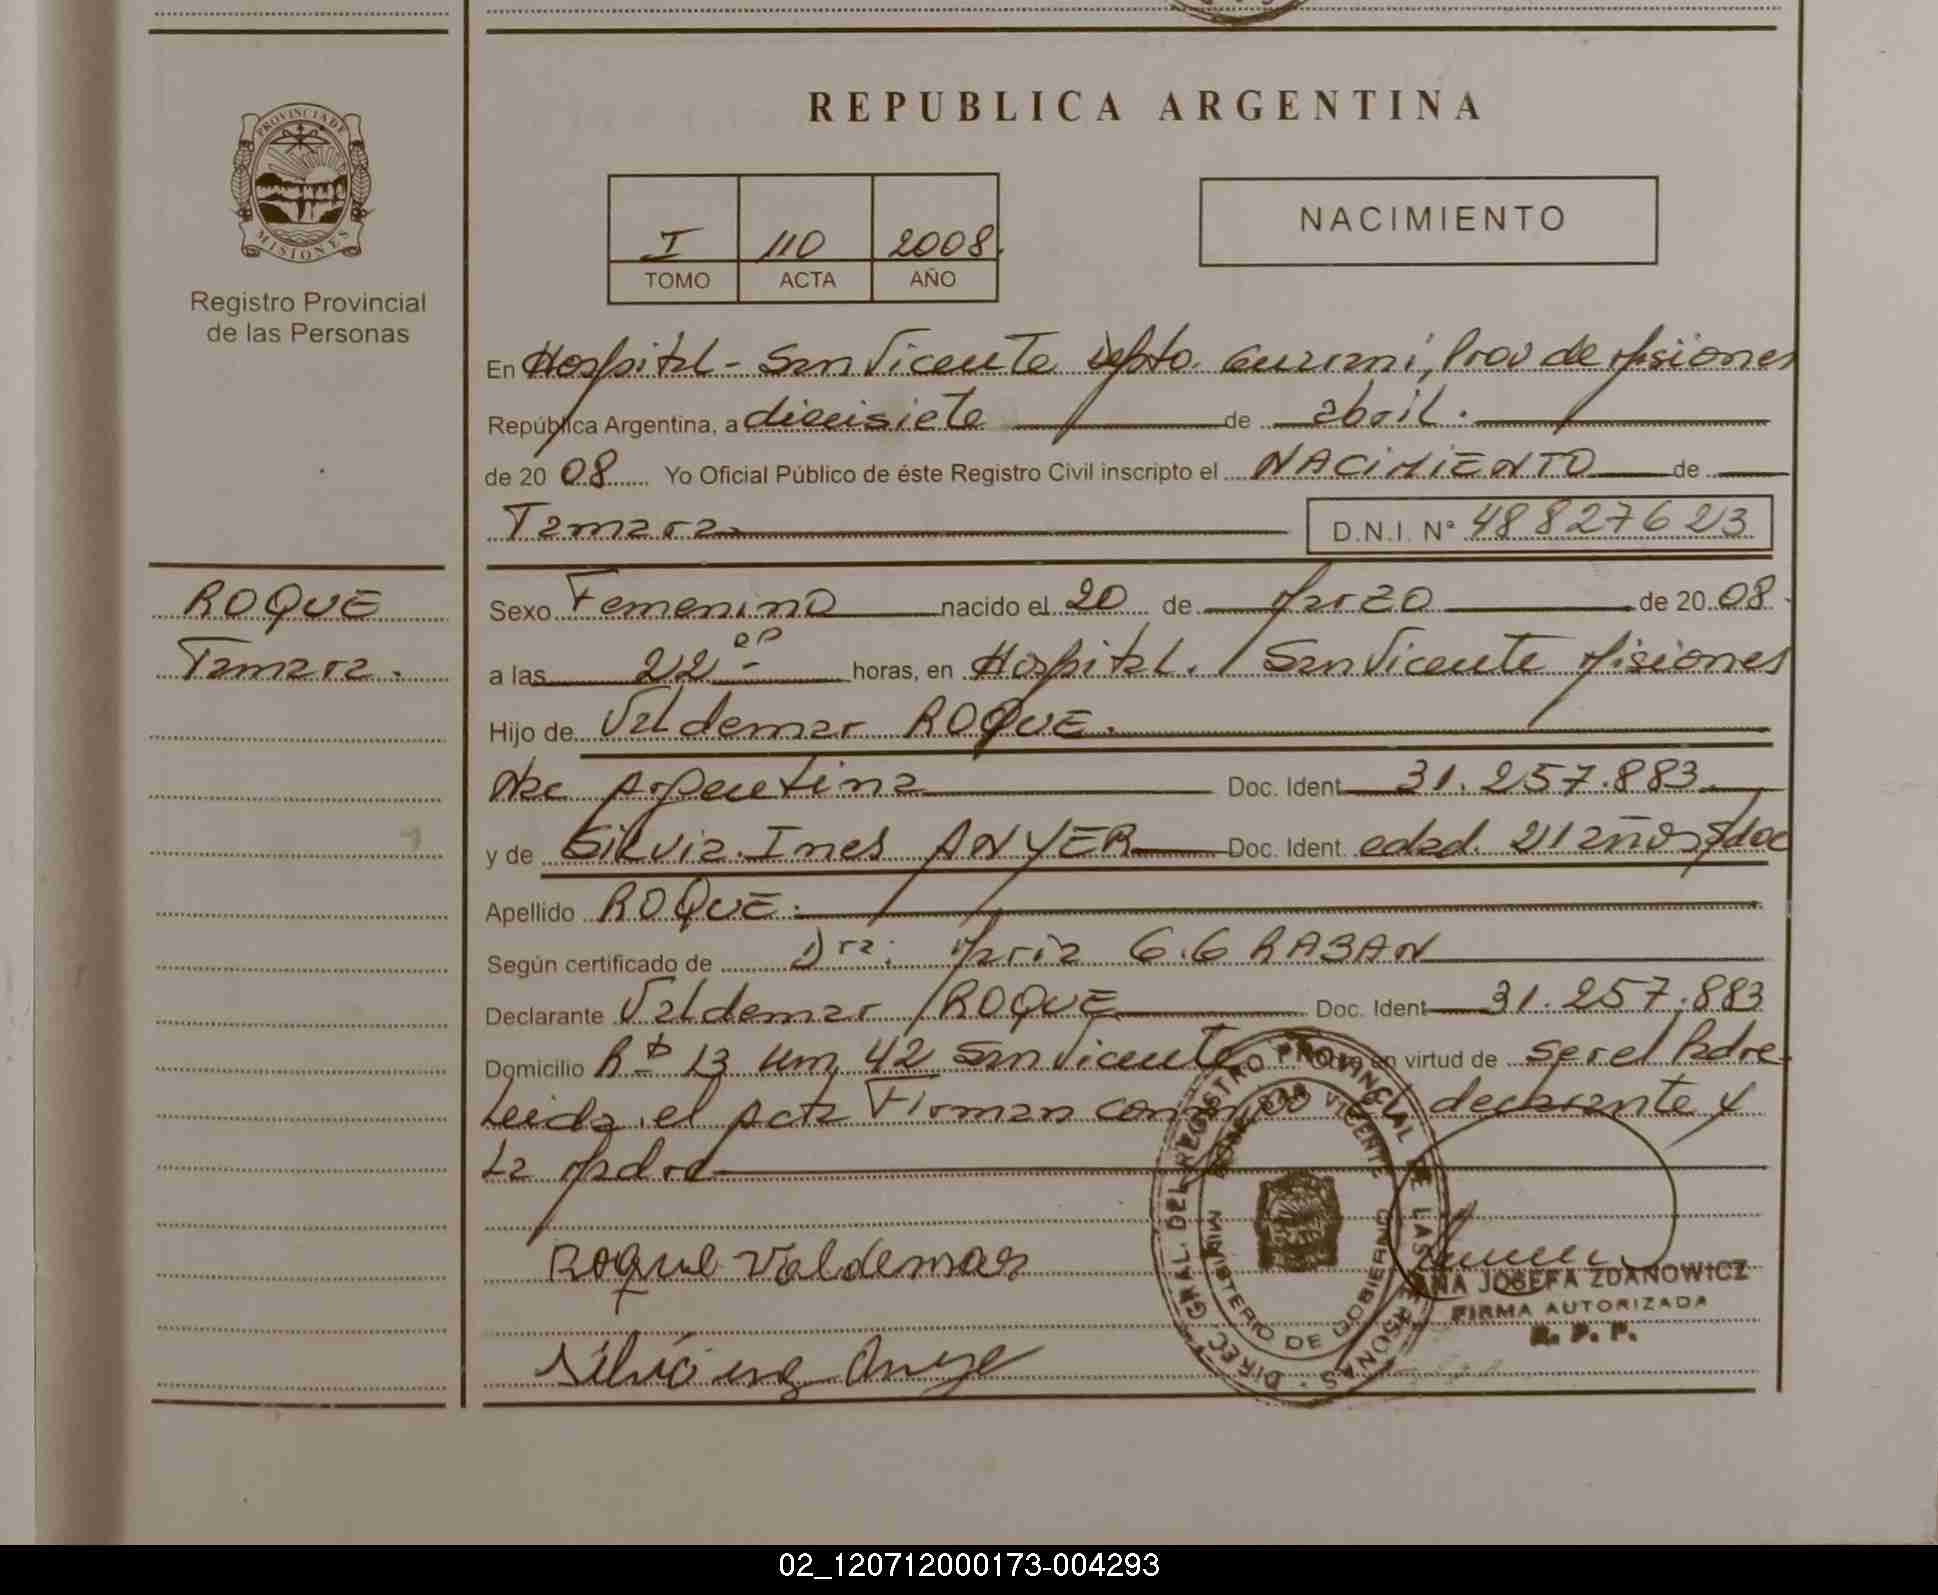 REPUBLICA ARGENTINA
PROVINCIA DE MISIONES
Registro Provincial
de las Personas
I 110 2008.
TOMO ACTA AÑO
NACIMIENTO
En Hospital - San Vicente Depto. Guarani, Prov de Misiones
República Argentina, a diecisiete de abril.
de 20 08 Yo Oficial Público de éste Registro Civil inscripto el NACIMIENTO de
Tamara D.N.I. Nº 48827623
ROQUE
Tamara.
Sexo Femenino nacido el 20 de Marzo de 20 08.
a las 22 horas, en Hospital. San Vicente Misiones
Hijo de Valdemar ROQUE.
Nac Argentina Doc. Ident 31.257.883.
y de Silvia Ines ANYER Doc. Ident. edad. 21 años
Apellido ROQUE.
Según certificado de Dra: Maria G.G RABAN
Declarante Valdemar ROQUE Doc. Ident 31.257.883
Domicilio 13 Km 42 San Vicente en virtud de ser el Padre.
Leida el Acta Firman declarante y
La Madre
Roque Valdemar
DIREC. GRAL. DEL REGISTRO PROVINCIAL DE LAS PERSONAS
MINISTERIO DE GOBIERNO
SAN VICENTE
ANA JOSEFA ZDANOWICZ
FIRMA AUTORIZADA
R. P. P.
02_120712000173-004293